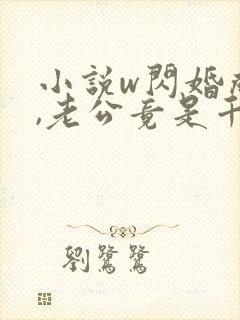 小說w閃婚
,老公竟是千
劉鷺鷺